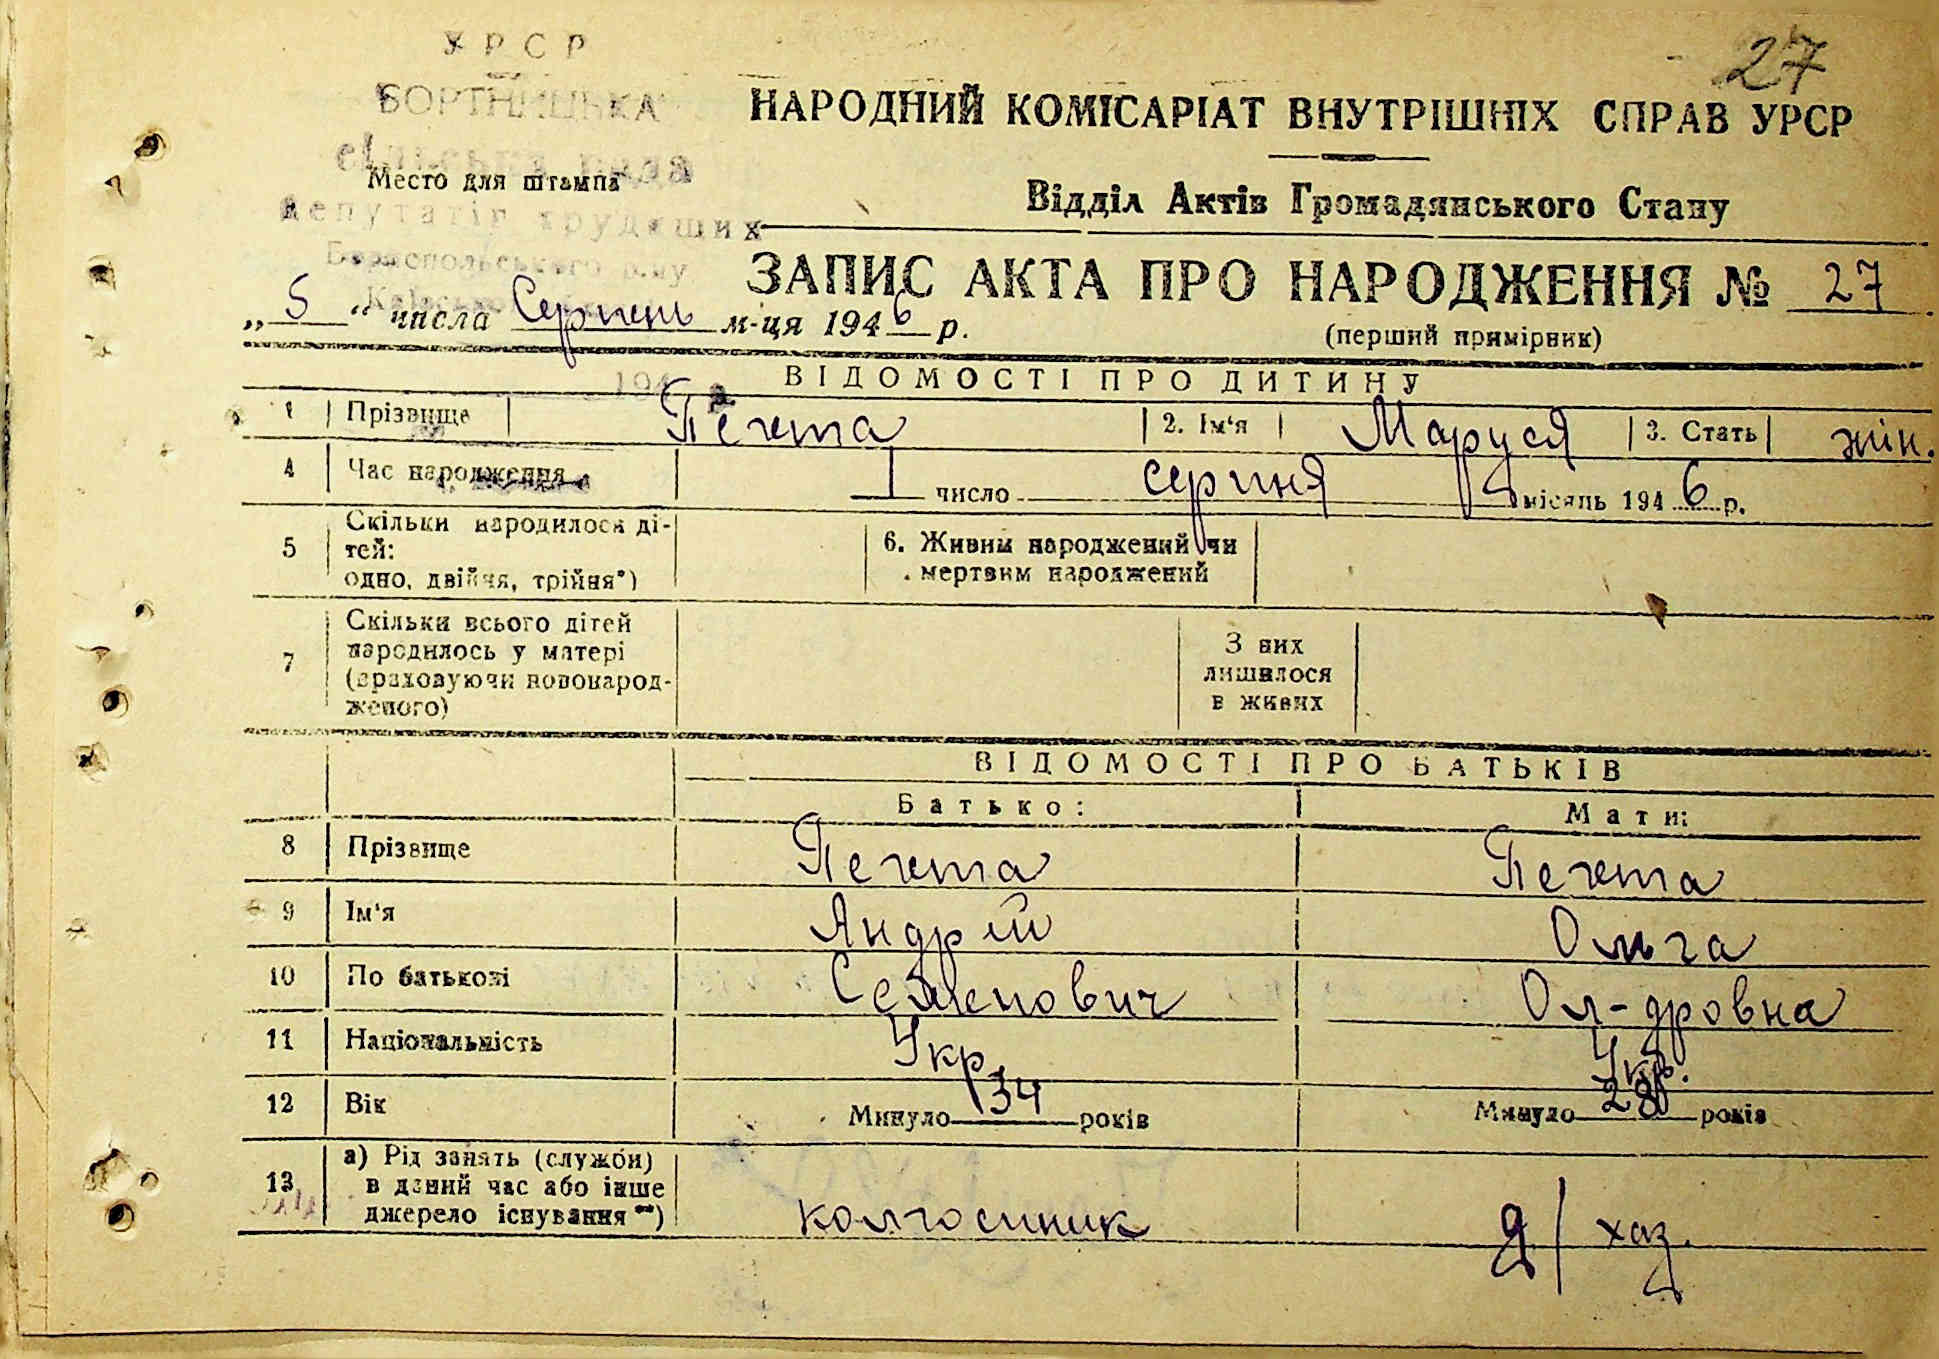 27
УРСР
БОРТНИЦЬКА
сільська рада
депутатів трудящих
Бориспольського р-ну
Место для штампа
НАРОДНИЙ КОМІСАРІАТ ВНУТРІШНІХ СПРАВ УРСР
Відділ Актів Громадянського Стану
ЗАПИС АКТА ПРО НАРОДЖЕННЯ № 27
(перший примірник)
„5“ числа Серпень м-ця 1946 р.
194
ВІДОМОСТІ ПРО ДИТИНУ
1 Прізвище Печета 2. Ім'я Маруся 3. Стать жін.
4 Час народження 1 число серпня місяць 1946 р.
5 Скільки народилося дітей: одно, двійня, трійня*) 6. Живим народжений чи мертвим народжений
7 Скільки всього дітей народилось у матері (враховуючи новонародженого) З них лишилося в живих
ВІДОМОСТІ ПРО БАТЬКІВ
Батько: Мати:
8 Прізвище Печета Печета
9 Ім'я Андрій Ольга
10 По батькові Семенович Ол-дровна
11 Національність Укр. Укр.
12 Вік Минуло 34 років Минуло 28 років
13 а) Рід занять (служби) в даний час або інше джерело існування **) колгоспник д/хаз.